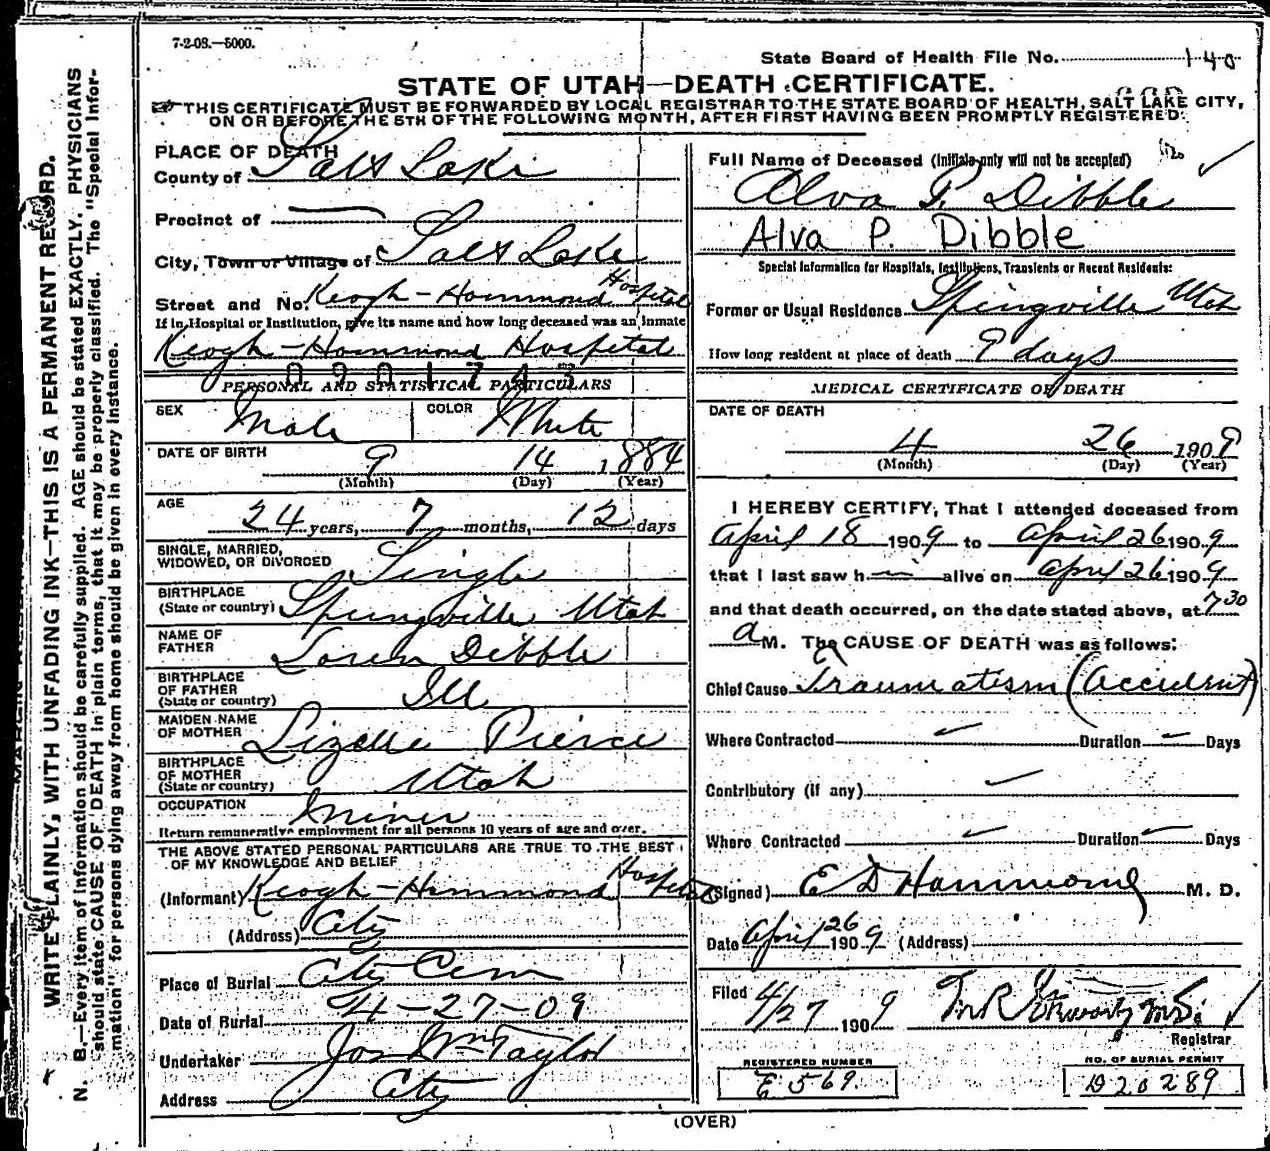 7-2-08.—5000.
State Board of Health File No. 140
STATE OF UTAH—DEATH CERTIFICATE.
THIS CERTIFICATE MUST BE FORWARDED BY LOCAL REGISTRAR TO THE STATE BOARD OF HEALTH, SALT LAKE CITY,
ON OR BEFORE THE 5TH OF THE FOLLOWING MONTH, AFTER FIRST HAVING BEEN PROMPTLY REGISTERED.
WRITE PLAINLY, WITH UNFADING INK—THIS IS A PERMANENT RECORD.
N. B.—Every item of information should be carefully supplied. AGE should be stated EXACTLY. PHYSICIANS
should state CAUSE OF DEATH in plain terms, that it may be properly classified. The "Special Infor-
mation" for persons dying away from home should be given in every instance.
PLACE OF DEATH
County of Salt Lake
Precinct of
City, Town or Village of Salt Lake
Street and No. Keogh-Hammond Hospital
If in Hospital or Institution, give its name and how long deceased was an inmate
Keogh-Hammond Hospital
0901743
PERSONAL AND STATISTICAL PARTICULARS
SEX Male COLOR White
DATE OF BIRTH 9 14 1884
(Month) (Day) (Year)
AGE 24 years, 7 months, 12 days
SINGLE, MARRIED,
WIDOWED, OR DIVORCED Single
BIRTHPLACE
(State or country) Springville Utah
NAME OF
FATHER Loren Dibble
BIRTHPLACE
OF FATHER
(State or country) Ill
MAIDEN NAME
OF MOTHER Lizelle Pierce
BIRTHPLACE
OF MOTHER
(State or country) Utah
OCCUPATION Miner
Return remunerative employment for all persons 10 years of age and over.
THE ABOVE STATED PERSONAL PARTICULARS ARE TRUE TO THE BEST
OF MY KNOWLEDGE AND BELIEF
(Informant) Keogh-Hammond Hospital
(Address) City
Place of Burial City Cem
Date of Burial 4-27-09
Undertaker Jos Wm Taylor
Address City
Full Name of Deceased (Initials only will not be accepted)
Alva P. Dibble
Alva P. Dibble
Special Information for Hospitals, Institutions, Transients or Recent Residents:
Former or Usual Residence Springville Utah
How long resident at place of death 9 days
MEDICAL CERTIFICATE OF DEATH
DATE OF DEATH
4 26 1909
(Month) (Day) (Year)
I HEREBY CERTIFY, That I attended deceased from
April 18 1909 to April 26 1909
that I last saw him alive on April 26 1909
and that death occurred, on the date stated above, at 7 30
a M. The CAUSE OF DEATH was as follows:
Chief Cause Traumatism (Accident)
Where Contracted Duration Days
Contributory (if any)
Where Contracted Duration Days
(Signed) E D Hammond M. D.
Date April 26 1909 (Address)
Filed 4/27 1909
Registrar
REGISTERED NUMBER
E 569
NO. OF BURIAL PERMIT
D20289
(OVER)